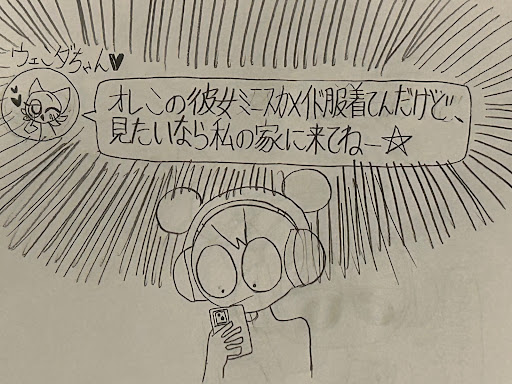 ウェンダちゃん♥
オレこの彼女ミニスカメイド服着てんだけど、
見たいなら私の家に来てねー☆